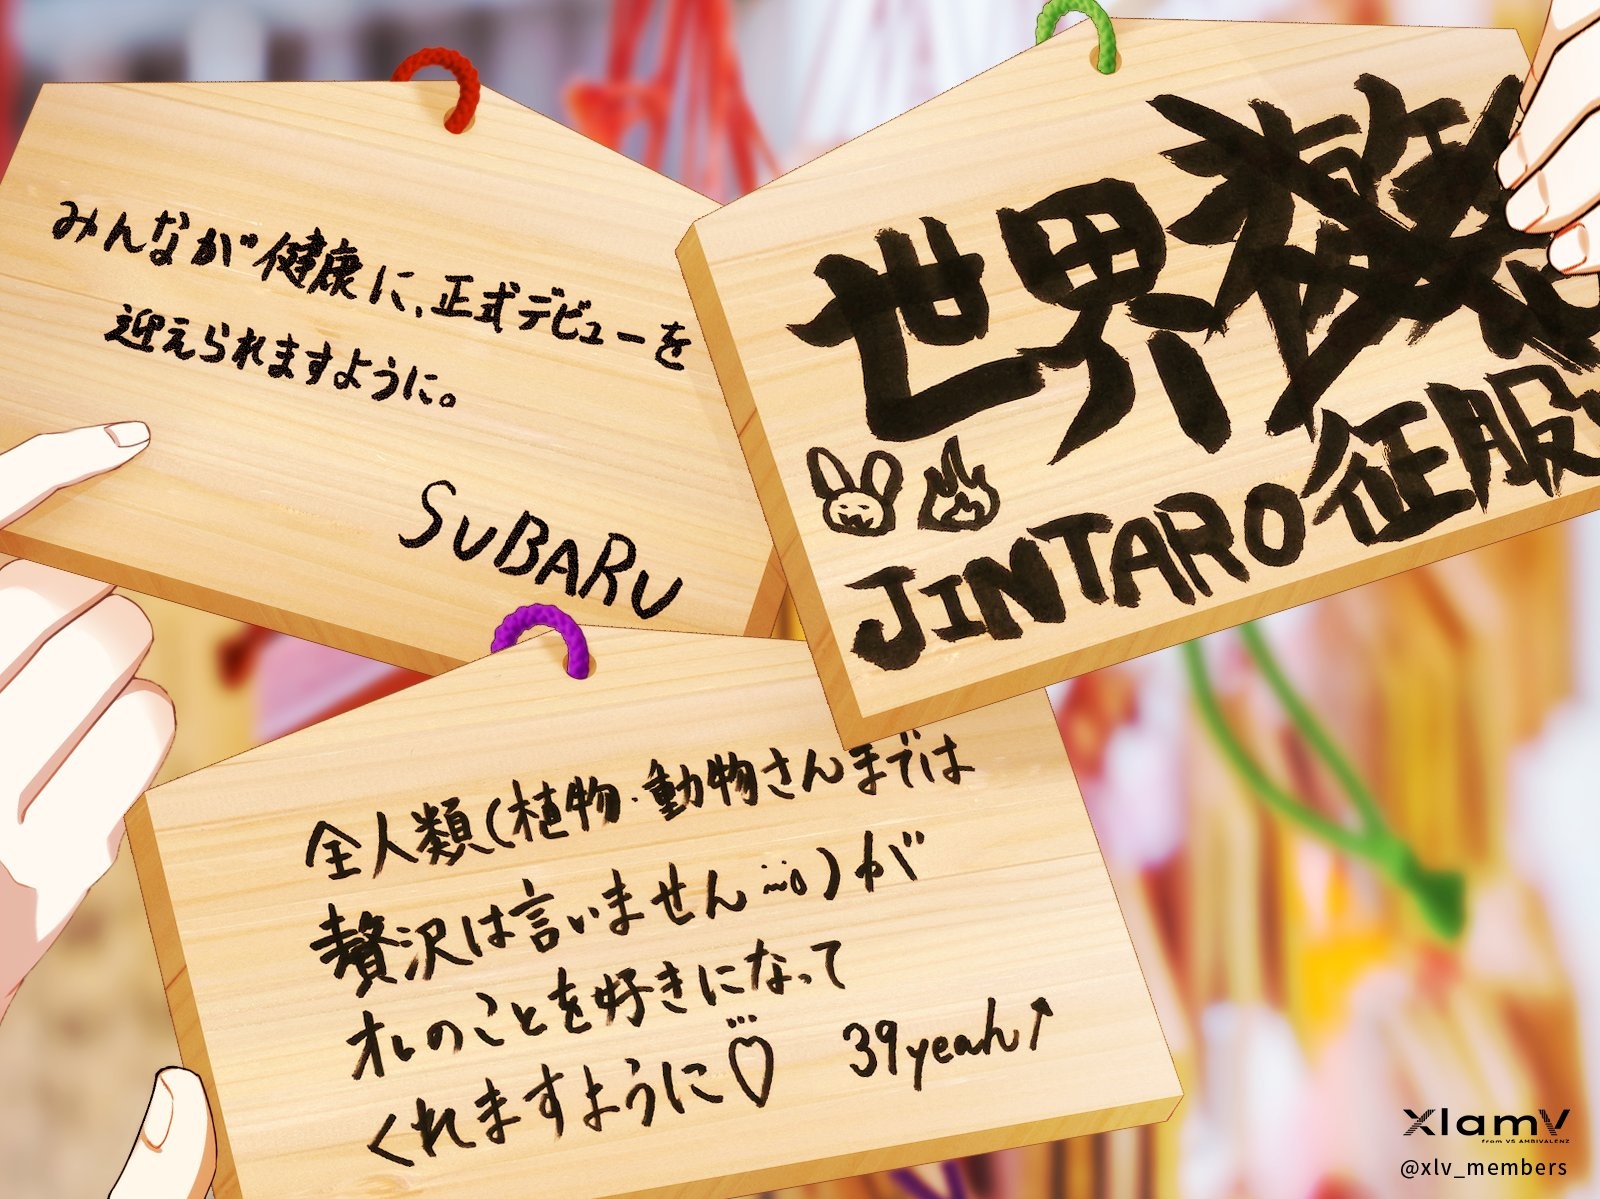 みんなが健康に、正式デビューを
迎えられますように。
SUBARU
世界
征服
JINTARO
全人類(植物・動物さんまでは
贅沢は言いません…。)が
オレのことを好きになって
くれますように♡
39yeah↑
XlamV
from VS AMBIVALENZ
@xlv_members